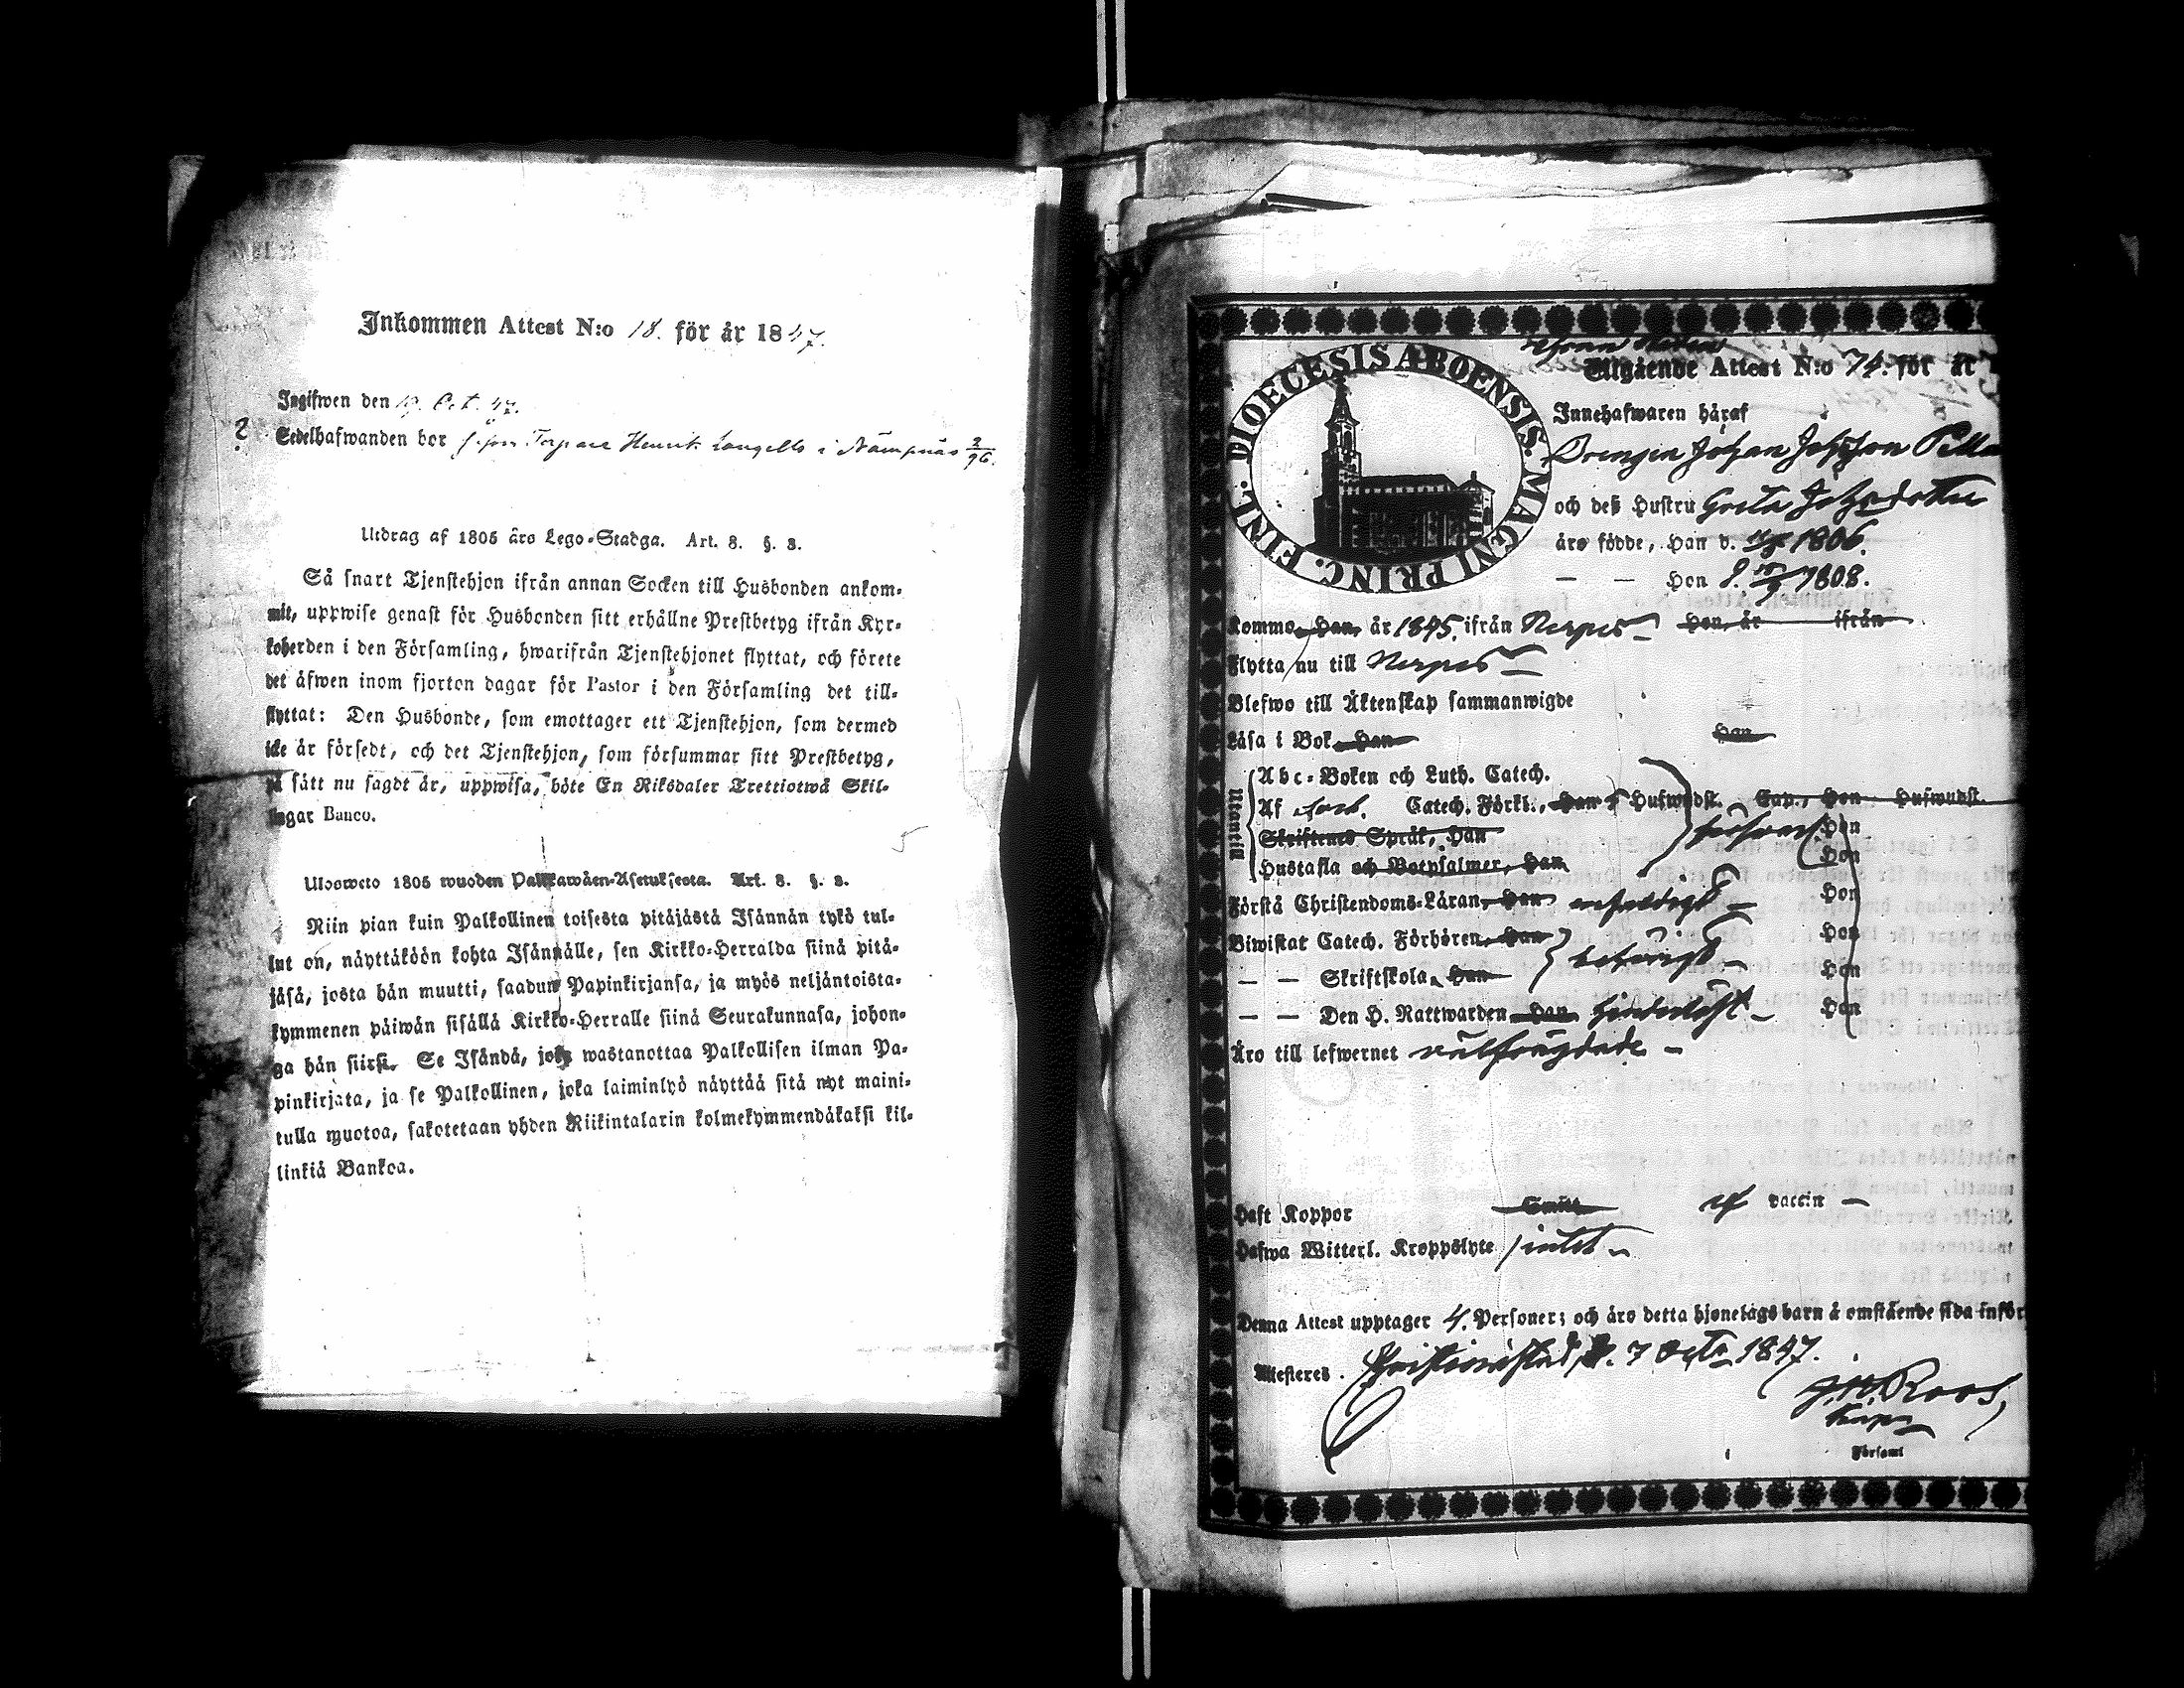 Inkommen Attest N:o 18. för år 1847.
Ingifwen den 19. Oct. 47.
? Sedelhafwanden bor hos Torpare Henrik Långells i Nämpnäs 2/96.
Utdrag af 1805 års Lego-Stadga. Art. 8. §. 3.
Så snart Tjenstehjon ifrån annan Socken till Husbonden ankom-
mit, uppwise genast för Husbonden sitt erhållne Prestbetyg ifrån Kyr-
koherden i den Församling, hwarifrån Tjenstehjonet flyttat, och förete
det äfwen inom fjorton dagar för Pastor i den Församling det till-
flyttat: Den Husbonde, som emottager ett Tjenstehjon, som dermed
icke är försedt, och det Tjenstehjon, som försummar sitt Prestbetyg,
på sätt nu sagdt är, uppwisa, böte En Riksdaler Trettiotwå Skil-
lingar Banco.
Ulosweto 1805 wuoden Palkkawäen-Asetuksesta. Art. 8. §. 3.
Niin pian kuin Palkollinen toisesta pitäjästä Isännän tykö tul-
lut on, näyttäköön kohta Isännälle, sen Kirkko-Herralda siinä pitä-
jäsä, josta hän muutti, saadun Papinkirjansa, ja myös neljäntoista-
kymmenen päiwän sisällä Kirkko-Herralle siinä Seurakunnasa, johon-
ga hän siirsi. Se Isändä, joka wastanottaa Palkollisen ilman Pa-
pinkirjata, ja se Palkollinen, joka laiminlyö näyttää sitä nyt maini-
tulla muotoa, sakotetaan yhden Riikintalarin kolmekymmendäkaksi kil-
linkiä Bankoa.
DIOECESIS ABOENSIS. MAGNI PRINC. FINL.
Utgående Attest N:o 74. för år
Innehafwaren häraf
Drengen Johan Josephsson
och deß Hustru Greta Johansdotter
äro födde, Han d. 1806.
— — Hon d. 1808.
Kommo Han år 1845, ifrån Nerpes Hon, år ifrån
Flytta nu till Nerpes
Blefwo till Äktenskap sammanwigde
Läsa i Bok Han Hon
Utantill
Abc-Boken och Luth. Catech.
Af Catech. Förkl., Han Hufwudst. Cap., Hon Hufwudst.
Skriftenes Språk, Han Hon
Hustafla och Botpsalmer, Han Hon
Förstå Christendoms-Läran, Han enfaldigt Hon
Biwistat Catech. Förhören, Han Hon
— — Skriftskola, Han behörigt Hon
— — Den H. Nattwarden Han Hon
Äro till lefwernet wälfrägdade
Haft Koppor vaccin
Hafwa Witterl. Kroppslyte intet
Denna Attest upptager 4. Personer; och äro detta hjonelags barn å omstående sida inför
Attesteras. Christinestad, d. 7 Oct. 1847.
Roos,
Församl